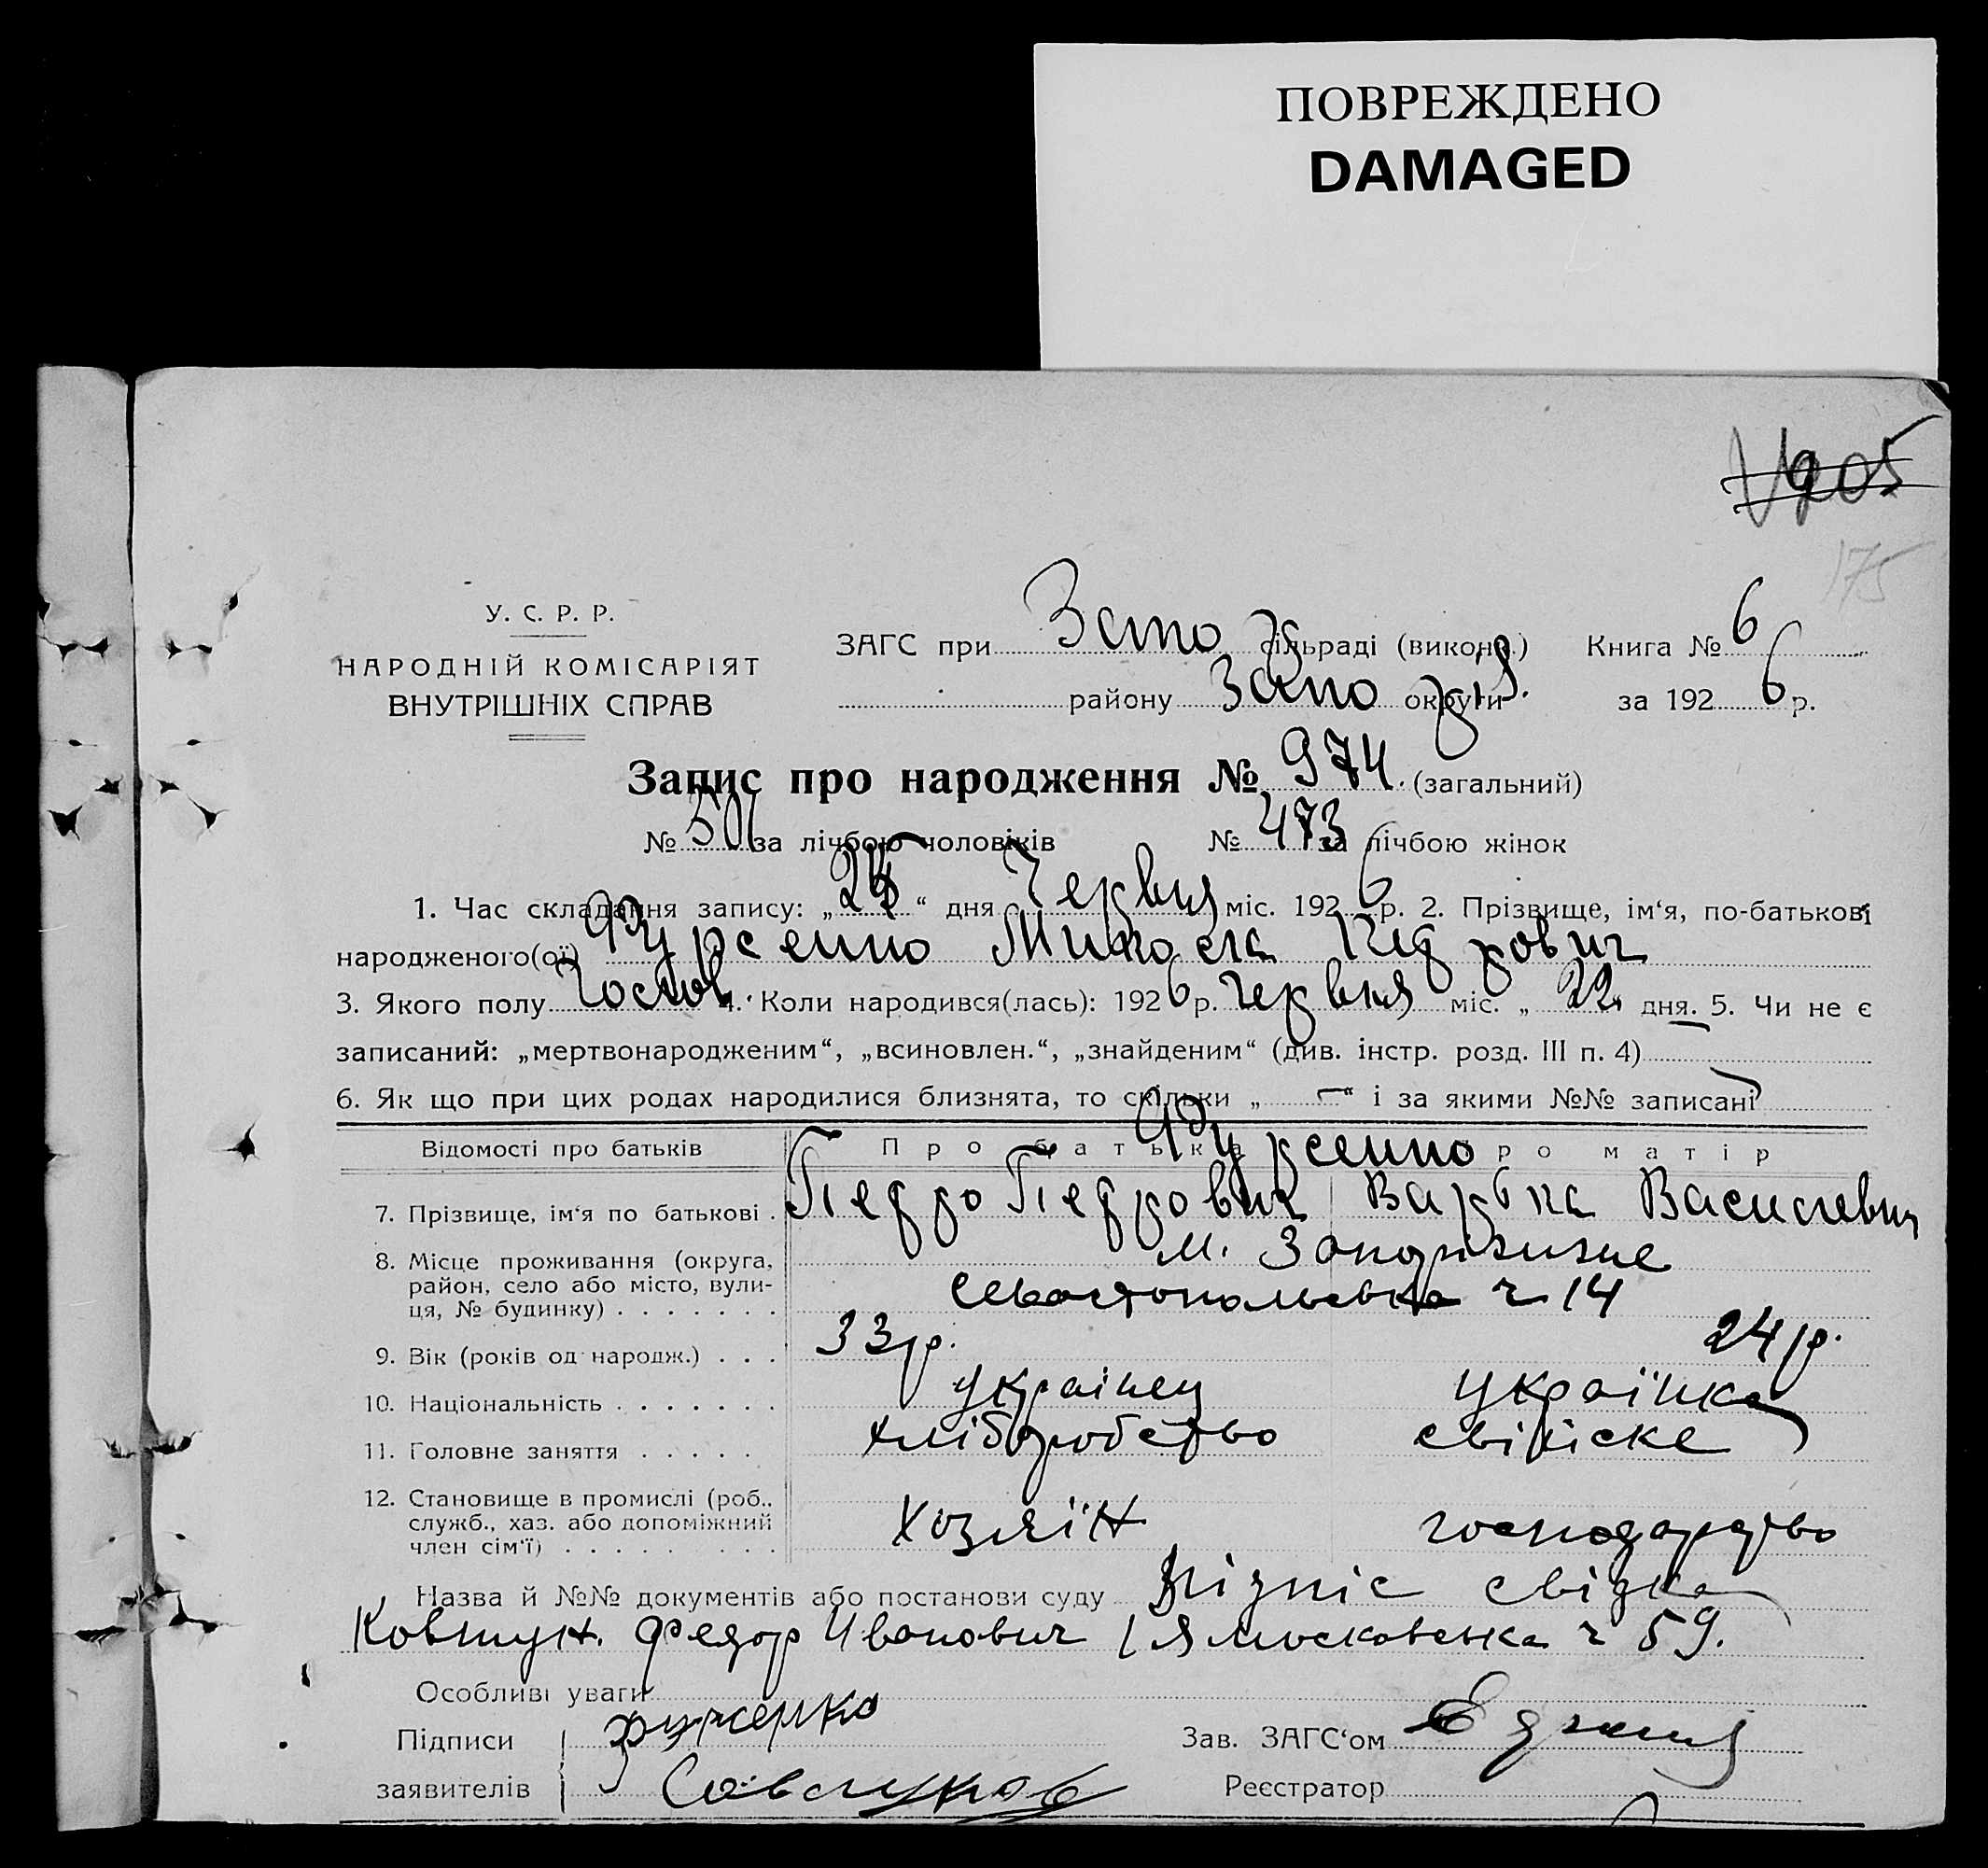 ПОВРЕЖДЕНО
DAMAGED
175
У. С. Р. Р.
НАРОДНІЙ КОМІСАРІЯТ
ВНУТРІШНІХ СПРАВ
ЗАГС при сільраді (викон.) Книга № 6
району округи за 1926 р.
Запис про народження № 974. (загальний)
№ 501 за лічбою чоловіків № 473 за лічбою жінок
1. Час складання запису: „ “ дня Червня міс. 1926 р. 2. Прізвище, ім‘я, по-батькові
народженого(ої) Фурсенко Микола Педрович
3. Якого полу 4. Коли народився(лась): 1926 р. червня міс. „ 22 дня. 5. Чи не є
записаний: „мертвонародженим“, „всиновлен.“, „знайденим“ (див. інстр. розд. III п. 4)
6. Як що при цих родах народилися близнята, то скільки „ — “ і за якими №№ записані
Відомості про батьків Про батька Про матір
Фурсенко
7. Прізвище, ім‘я по батькові . Педро Педрович Варька Василевич
8. Місце проживання (округа, район, село або місто, вули-ця, № будинку) . . . . . . . м. Запоріжжє
Севастопольська ч 14
9. Вік (років од народж.) . . . 33 р. 24 р.
10. Національність . . . . . . . українец українка
11. Головне заняття . . . . . хліборобство свійске
12. Становище в промислі (роб., служб., хаз. або допоміжний член сім‘ї) . . . . . . . . . хозяїн господарство
Назва й №№ документів або постанови суду свідка
Ковтун. Федор Иванович Московська ч 59.
Особливі уваги
Підписи Зав. ЗАГС‘ом
заявителів Реєстратор